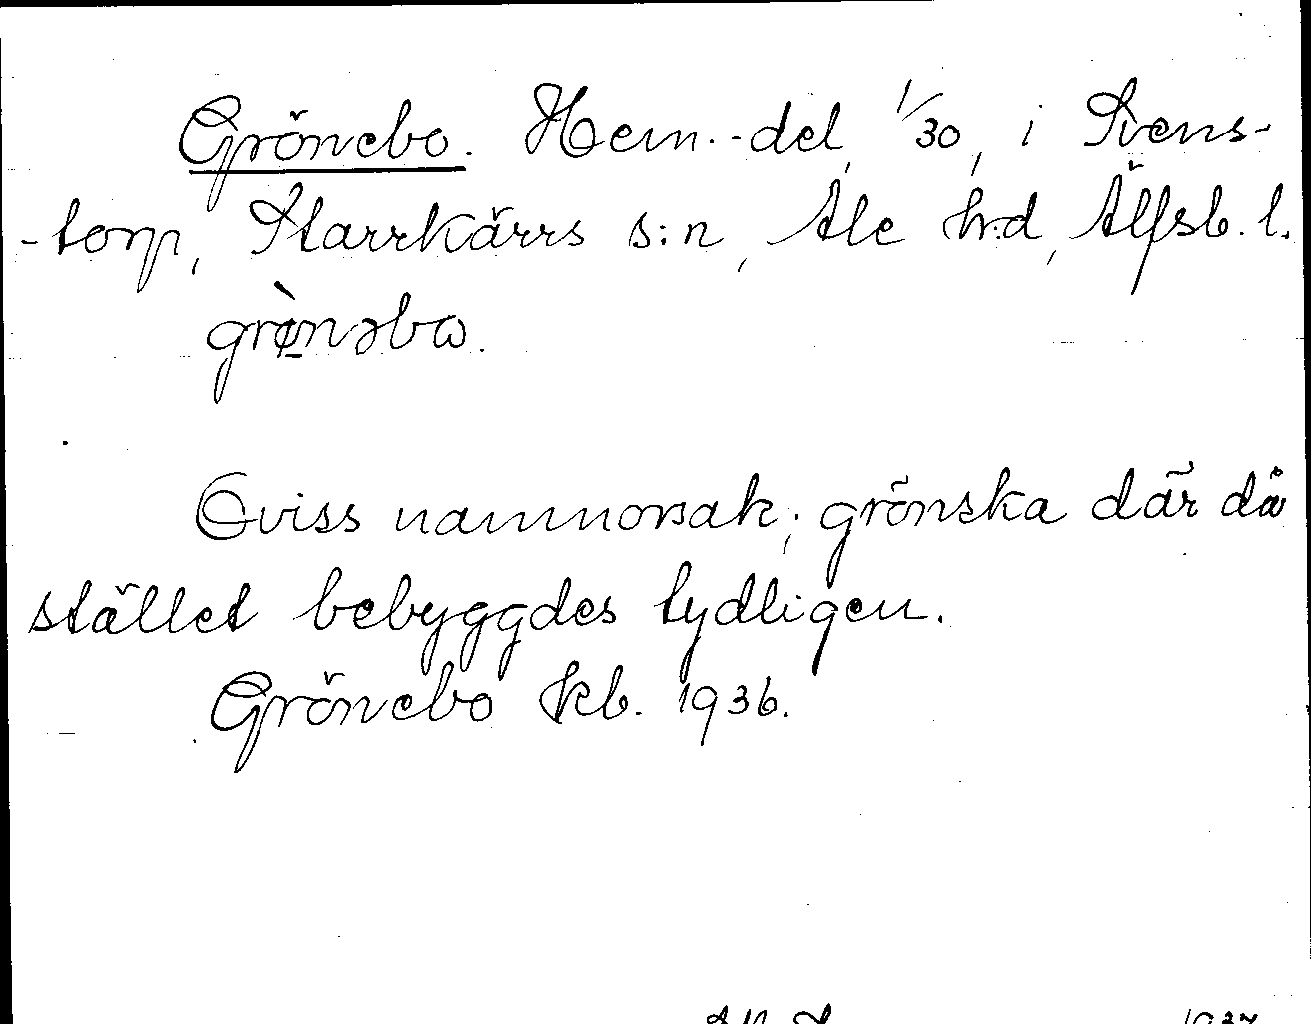 Grönebo. Hem.-del, 1/30, i Svens-
-torp, Starrkärrs s:n, Ale h:d, Älfsb. l.
grø̀nəbω.
Oviss namnorsak; grönska där då
stället bebyggdes tydligen.
Grönebo kb. 1936.